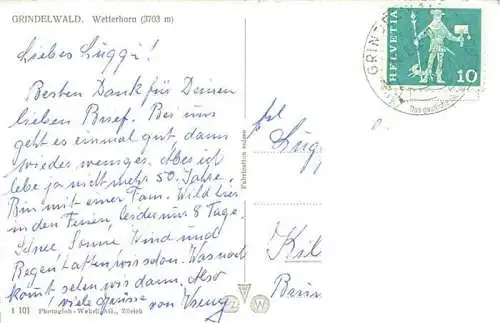 GRINDELWALD. Wetterhorn (3703 m)
Liebes Luggi!
Besten Dank für Deinen
lieben Brief. Bei uns
geht es einmal gut, dann
wieder weniger. Aber ich
lebe ja nicht mehr 50 Jahre.
Bin mit einer Fam. Wild hier
in den Ferien, leider nur 8 Tage.
Schnee, Sonne, Wind und
Regen hatten wir schon. Was noch
kommt sehen wir dann. Also
viele Grüsse von
1 101 Photoglob-Wehrli AG., Zürich
Fabrication suisse
HELVETIA
10
GRINDE
Lugg
Kil